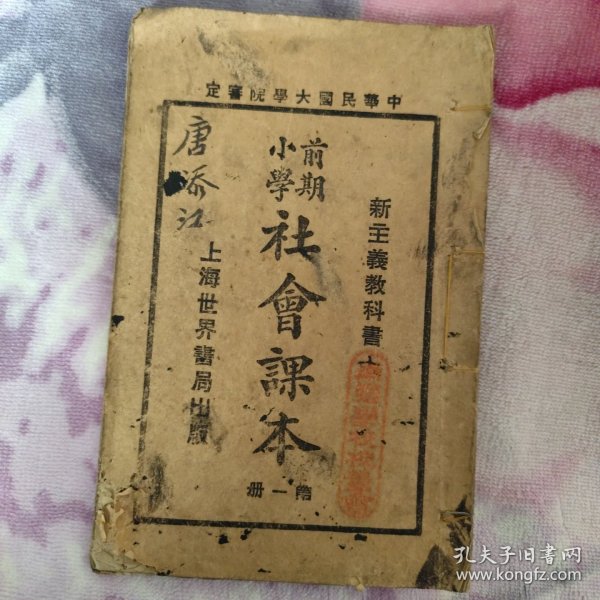 中華民國大學院審定
新主義教科書
前期
小學
社會課本
第一冊
上海世界書局出版
唐添江
孔夫子旧书网
www.kongfz.com